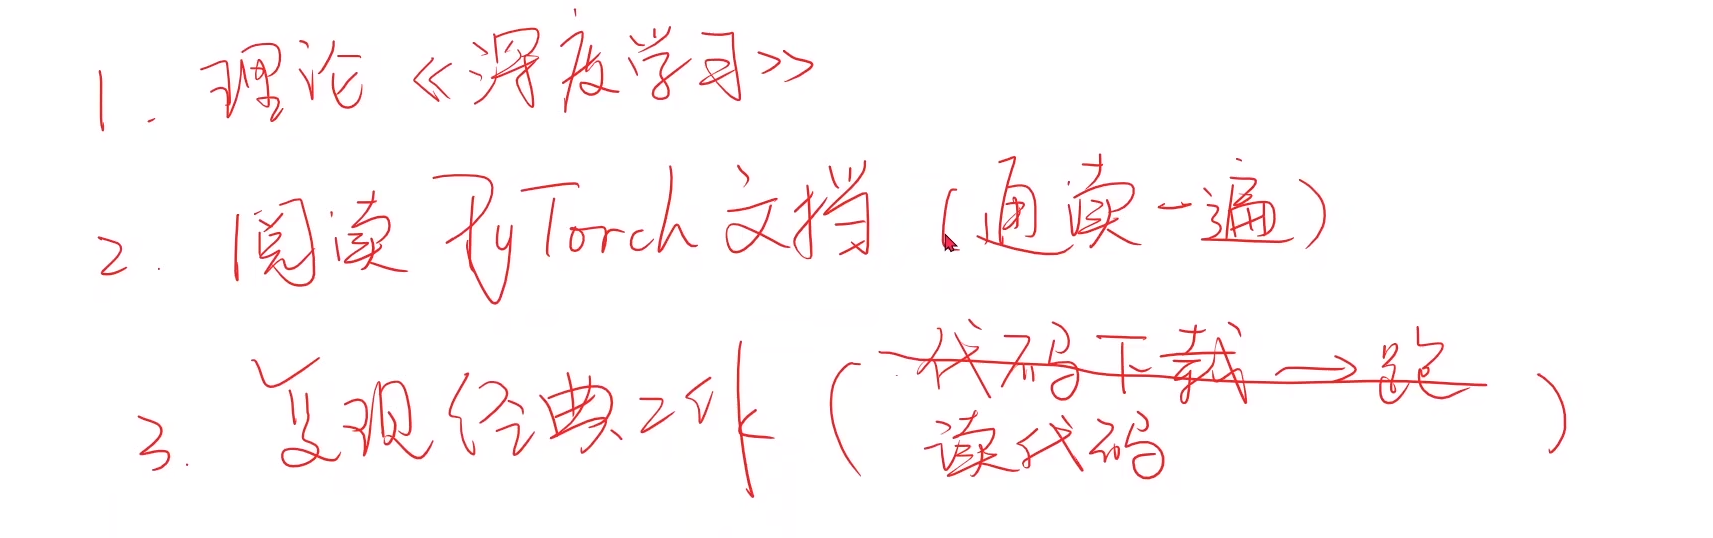 1. 理论《深度学习》
2. 阅读 PyTorch 文档（通读一遍）
3. 复现经典工作（代码下载 → 跑
读代码）